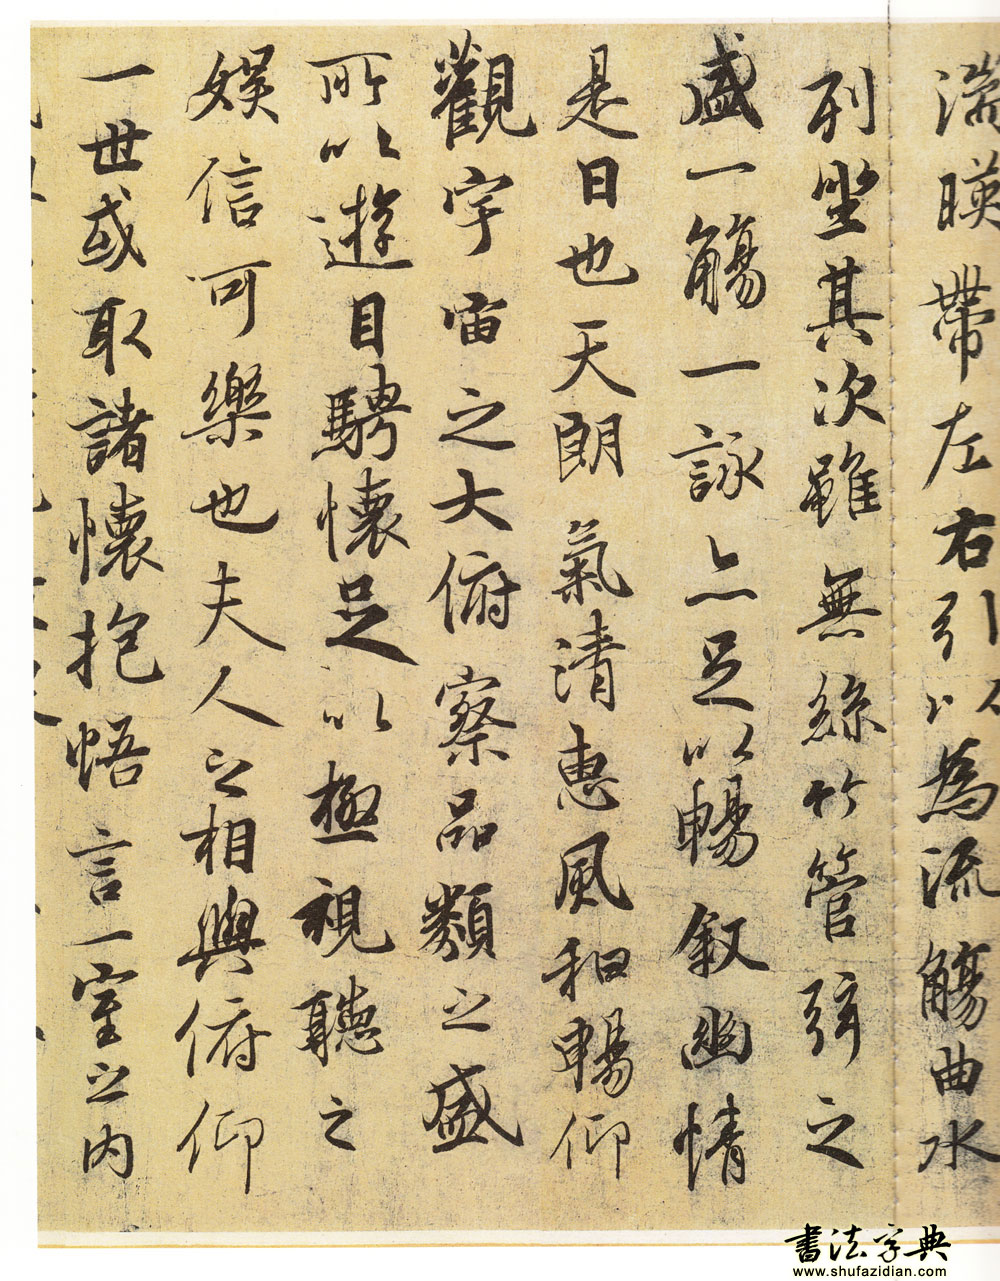 湍暎帶左右引以為流觴曲水
列坐其次雖無絲竹管弦之
盛一觴一詠亦足以暢敘幽情
是日也天朗氣清惠風和暢仰
觀宇宙之大俯察品類之盛
所以遊目騁懷足以極視聽之
娛信可樂也夫人之相與俯仰
一世或取諸懷抱悟言一室之內
書法字典
www.shufazidian.com